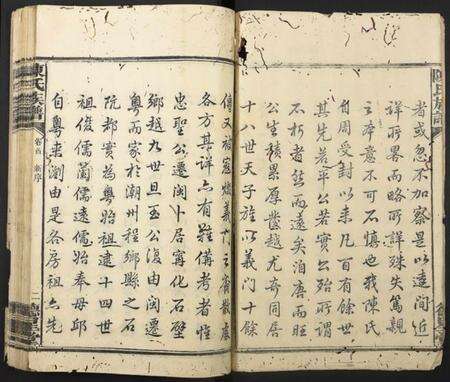 者或忽不加察是以遠間近
詳所畧而略所詳殊失篤親
之本意不可不慎也我陳氏
自周受封以來凡百有餘世
其先若平公若實公殆所謂
不朽者然而遠矣洎唐而旺
公生積累厚蓄越尤奇同居
十八世天子旌以義門十餘
傳又被寇燬義門之裔散居
各方其詳亦有難備考者惟
忠聖公遷閩卜居寧化石壁
鄉越九世旦玉公復由閩遷
粵而家於潮州程鄉縣之石
阬都實為粵始祖逮十四世
祖俊儒蘭儒遜儒始奉母邱
自粵來瀏由是各房祖亦先
陳氏族譜
卷首 新序
陳氏族譜